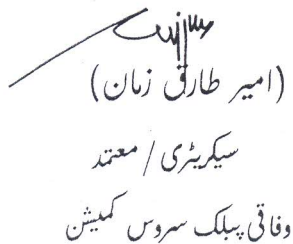 (امیر طارق زمان)
سیکریٹری / معتمد
وفاقی پبلک سروس کمیشن